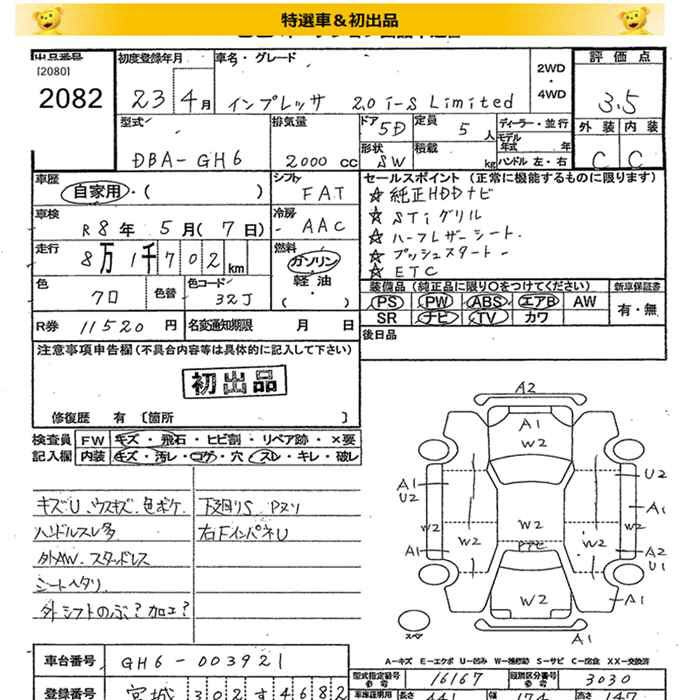 特選車＆初出品
出品番号 [2080] 2082
初度登録年月 23 4月
車名・グレード インプレッサ 2.0 i-S Limited
2WD・4WD
評価点 3.5
外装 C 内装 C
型式 DBA-GH6
排気量 2000 cc
ドア 5D 形状 SW
定員 5人 積載 kg
ディーラー・並行
モデル年式 年
ハンドル 左・右
車歴 自家用・( )
シフト FAT
車検 R8年 5月(7日)
冷房 AAC
走行 8万1千702km
燃料 ガソリン 軽油 ( )
色 クロ 色替
色コード 32J
R券 11520 円
名変通知期限 月 日
セールスポイント (正常に機能するものに限ります)
☆ 純正HDDナビ
☆ STiグリル
☆ ハーフレザーシート.
☆ プッシュスタート
☆ ETC
装備品 (純正品に限り○をつけてください)
新車保証書
PS PW ABS エアB AW
有・無
SR ナビ TV カワ
後日品
注意事項申告欄 (不具合内容等は具体的に記入して下さい)
初出品
修復歴 有 〔箇所 〕
検査員記入欄
FW キズ・飛石・ヒビ割・リペア跡・×要
内装 キズ・汚レ・コゲ・穴・スレ・キレ・破レ
キズU. ウスキズ. 色ボケ.
下廻りS Pヌリ
ハンドルスレ多
右FインパネU
外AW. スタッドレス
シートヘタリ
外シフトのぶ？加工？
A2
A1
W2
A1
U2
W2
A1
W2
W2
Pナビ
W2
W2
W2
U2
A1
W2
A2
U1
A1
A1
スペア
A-キズ E-エクボ U-凹み W-補修跡 S-サビ C-腐食 XX-交換済
車台番号 GH6-003921
型式指定番号 参考 16167
類別区分番号 参考 3030
登録番号 宮城 302 す 4682
車庫証明用 長さ 441 幅 174 高さ 147